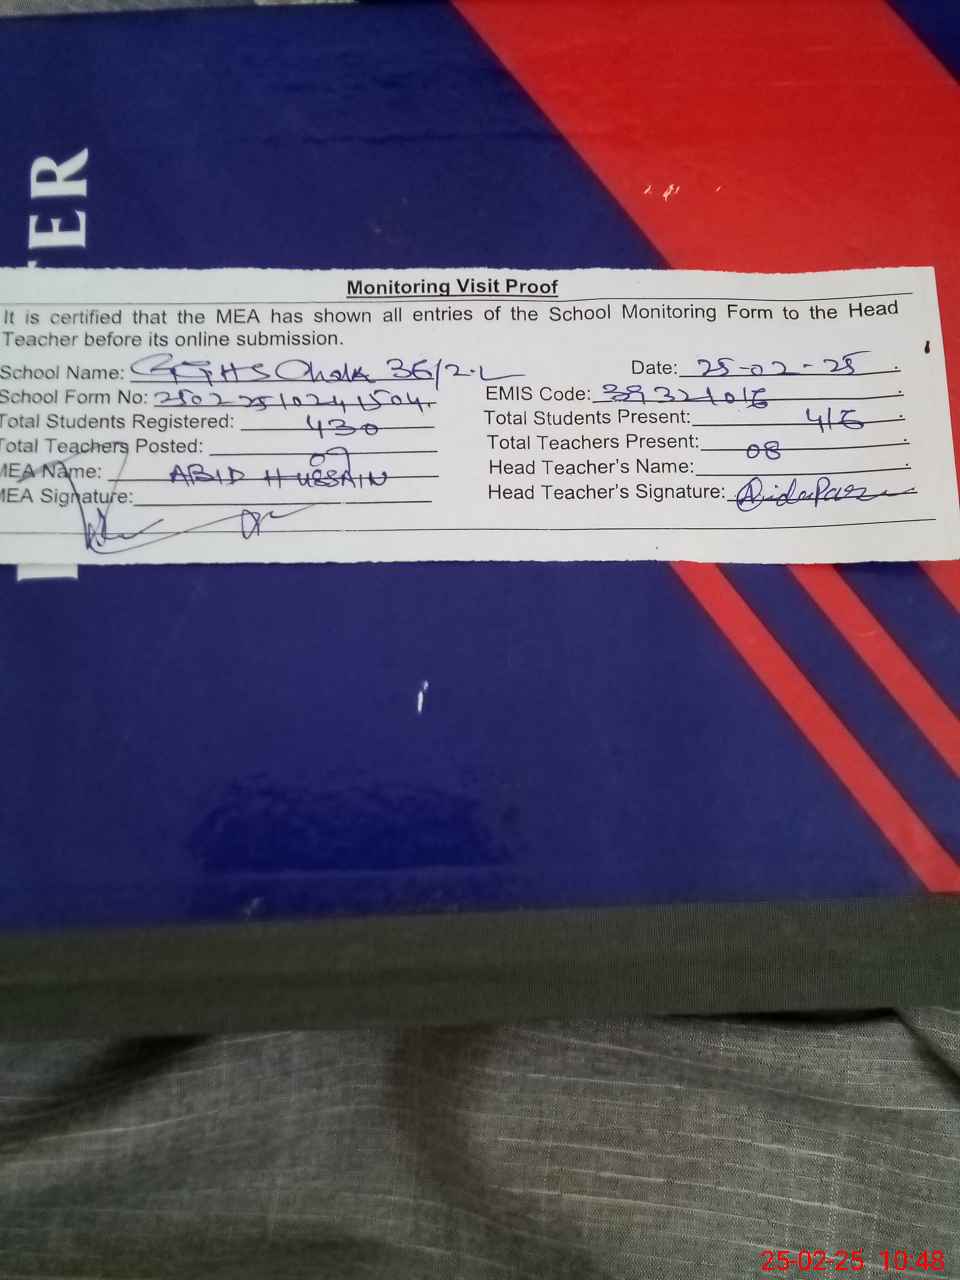 TER
Monitoring Visit Proof
It is certified that the MEA has shown all entries of the School Monitoring Form to the Head
Teacher before its online submission.
School Name: GGHS Chak 36/2.L Date: 25-02-25
School Form No: 25022510241504 EMIS Code: 39321016
Total Students Registered: 430 Total Students Present: 416
Total Teachers Posted: 09 Total Teachers Present: 08
MEA Name: ABID HUSSAIN Head Teacher's Name:
MEA Signature: Head Teacher's Signature:
25-02-25 10:48